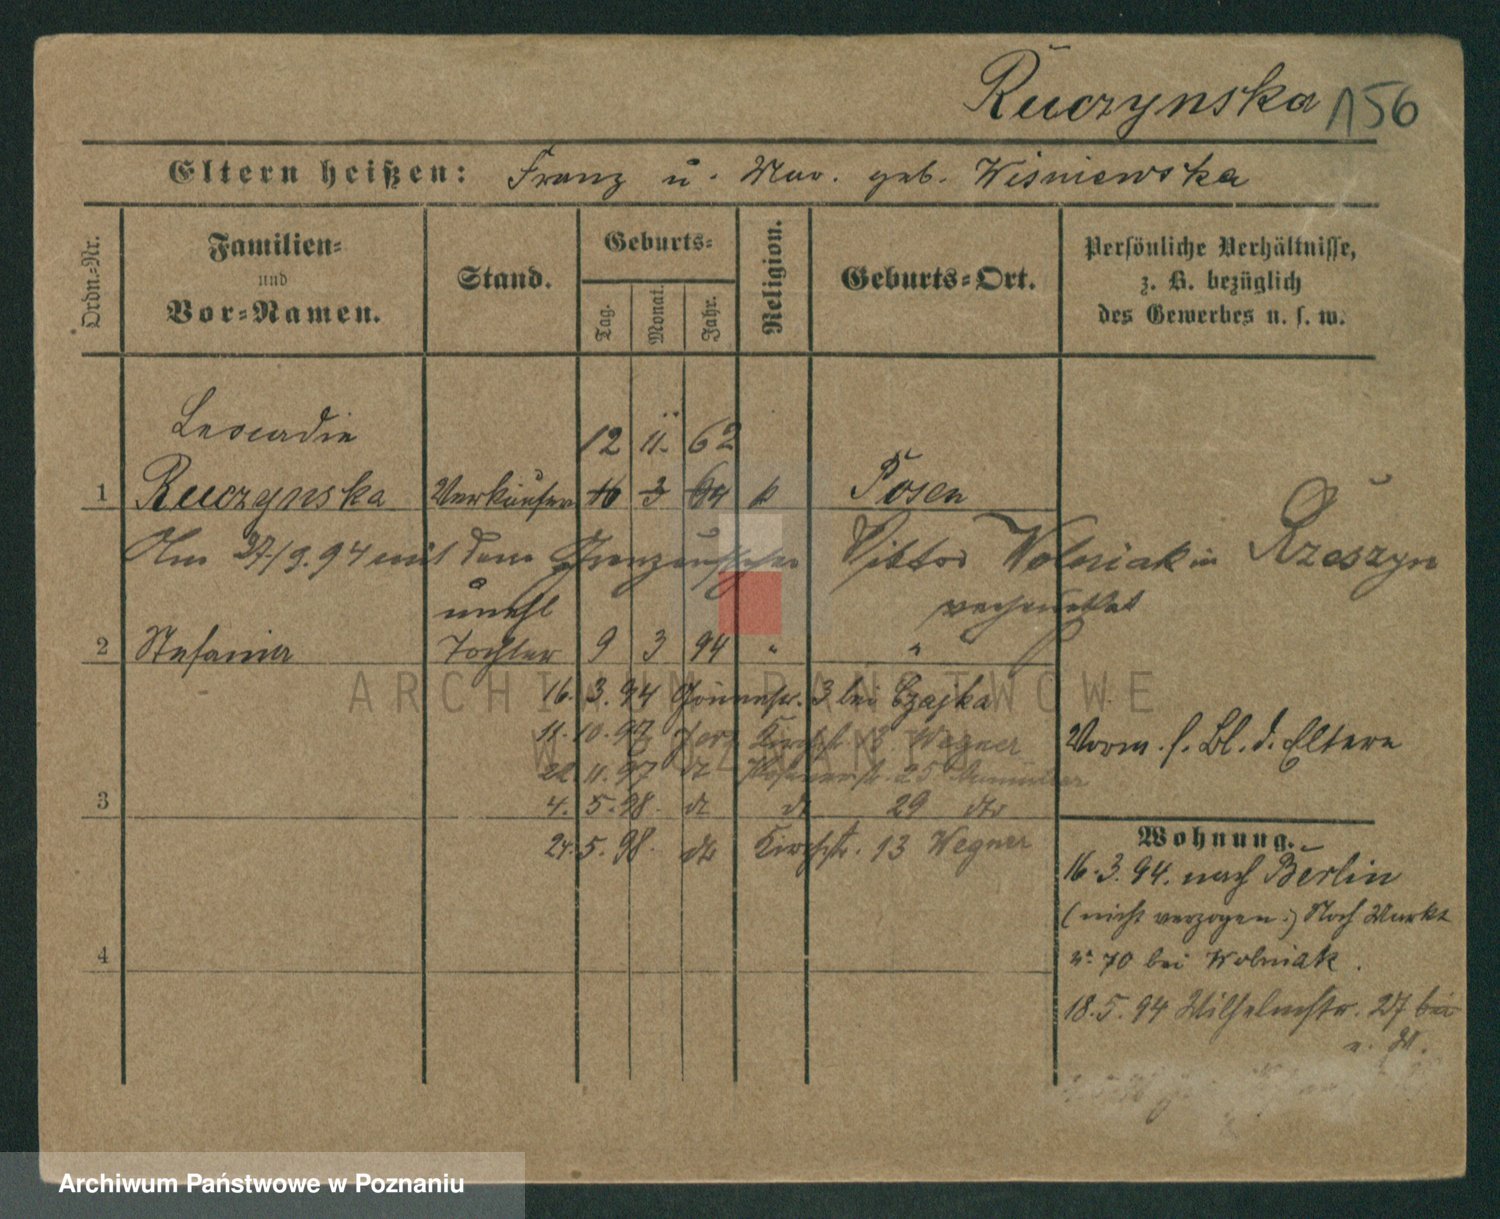 Ruczynska 156
Eltern heißen: Franz u. Mar. geb. Wisniewska
Ordn.-Nr.
Familien-
und
Vor-Namen.
Stand.
Geburts-
Tag.
Monat.
Jahr.
Religion.
Geburts-Ort.
Persönliche Verhältnisse,
z. B. bezüglich
des Gewerbes u. s. w.
Leocadie 12 11. 62
1 Ruczynska Verkäuferin 16 3 64 k Posen
Am 27/9.94 mit dem Grenzaufseher Viktor Wolniak in Rzeszyn
verheirathet
unehl
2 Stefania Tochter 9 3 94 " "
16. 3. 94 3 bei Czajka
11. 10. 97 Jerz. Kirchstr. 13 Wegner
22. 11. 97 dt 25
3 4. 5. 98. dt dt 29 dto
24. 5. 98. dt Kirchstr. 13 Wegner
4
Vorm. s. Bl. d. Eltern
Wohnung.
16. 3. 94. nach Berlin
(nicht verzogen.) Noch Markt
No 70 bei Wolniak.
18. 5. 94 Wilhelmstr. 27 bei
ARCHIWUM PAŃSTWOWE
W POZNANIU
Archiwum Państwowe w Poznaniu